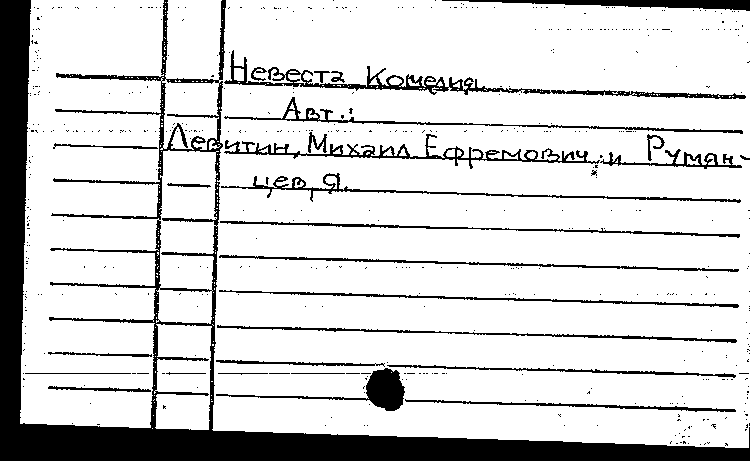 Невеста Комедия.
Авт.:
Левитин, Михаил Ефремович и Румян-
цев, Я.